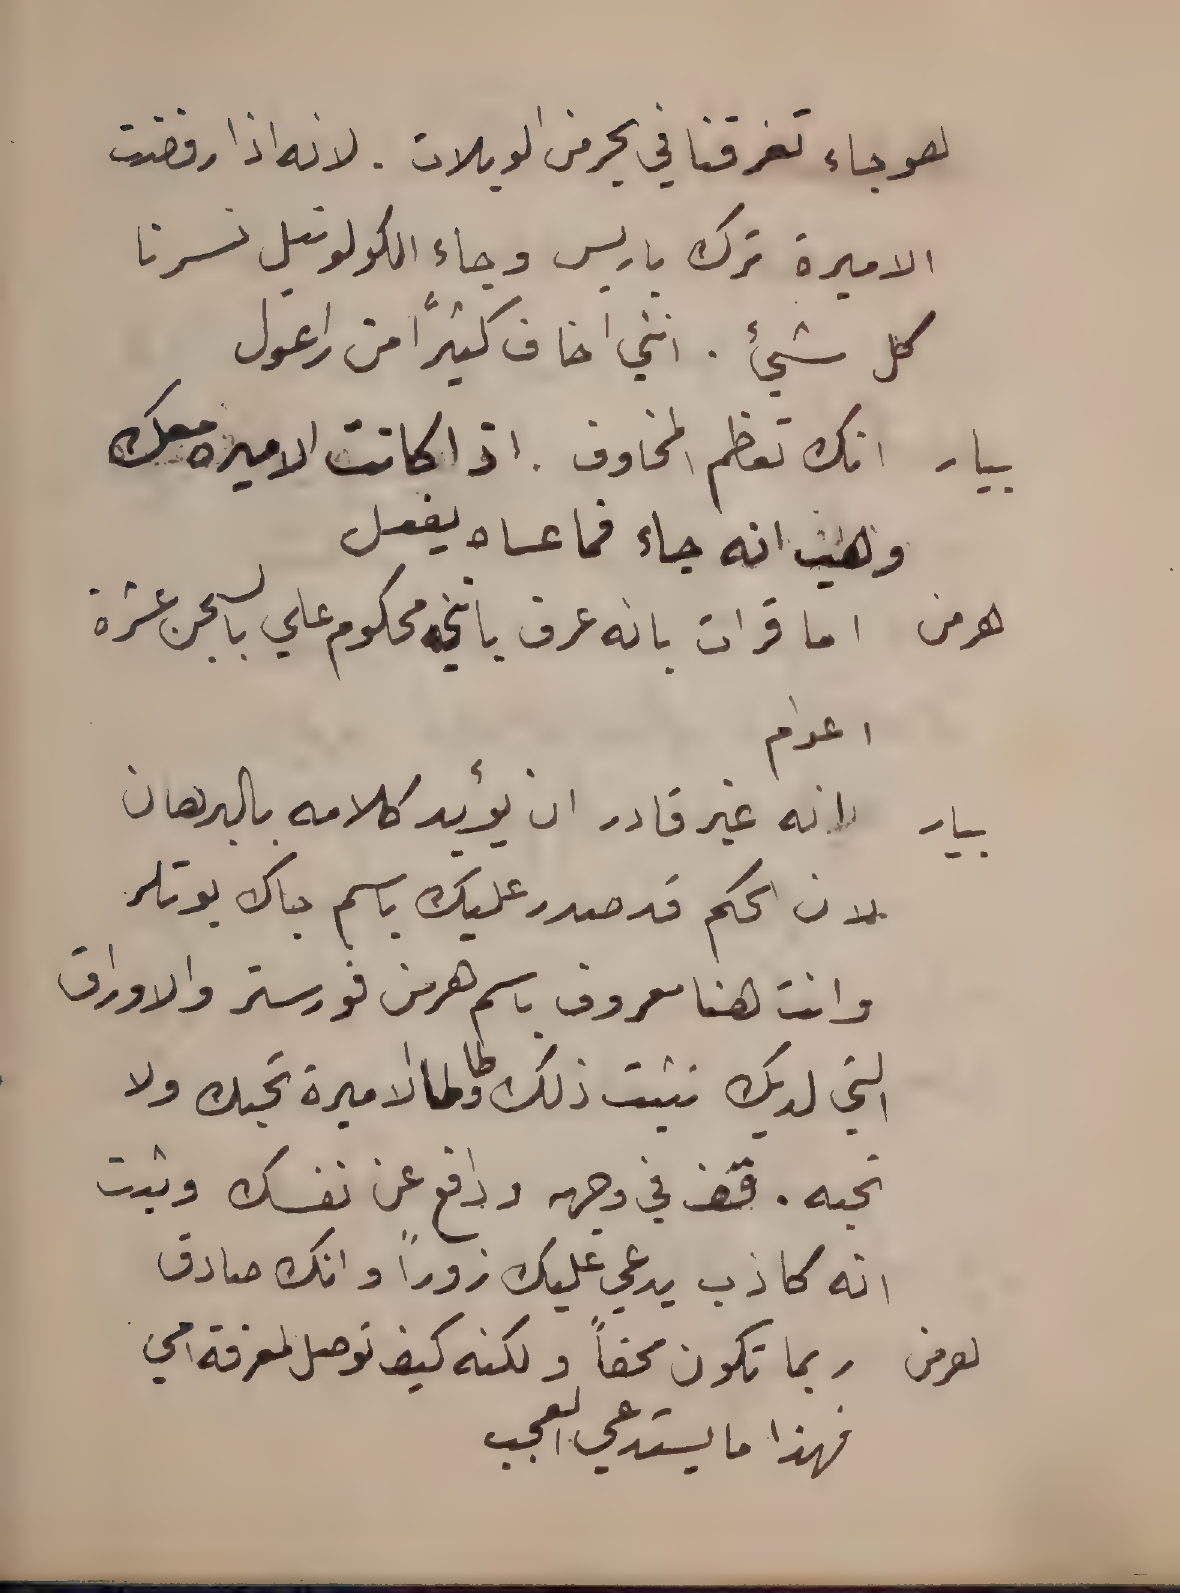 هوجاء تغرقنا في بحر من الويلات . لانه اذا رفضت
الاميرة ترك باريس وجاء الكولونيل خسرنا
كل شيءٍ . انني اخاف كثيرًا من راعول
بيار انك تعظم المخاوف . اذا كانت الاميره معك
وهب انه جاء فما عساه يفعل
هرمن اما قرات بانه عرف بانني محكوم علي بالسجن عشرة
اعوام
بيار لانه غير قادر ان يؤيد كلامه بالبرهان
لان الحكم قد صدر عليك باسم جاك بوتلر
وانت هنا معروف باسم هرمن فورستر والاوراق
التي لديك تثبت ذلك وطالما الاميرة تحبك ولا
تحبه . فقف في وجهه ودافع عن نفسك وثبت
انه كاذب يدعي عليك زوراً وانك صادق
هرمن ربما تكون محقاً ولكنه كيف توصل لمعرفة امي
فهذا ما يستدعي العجب